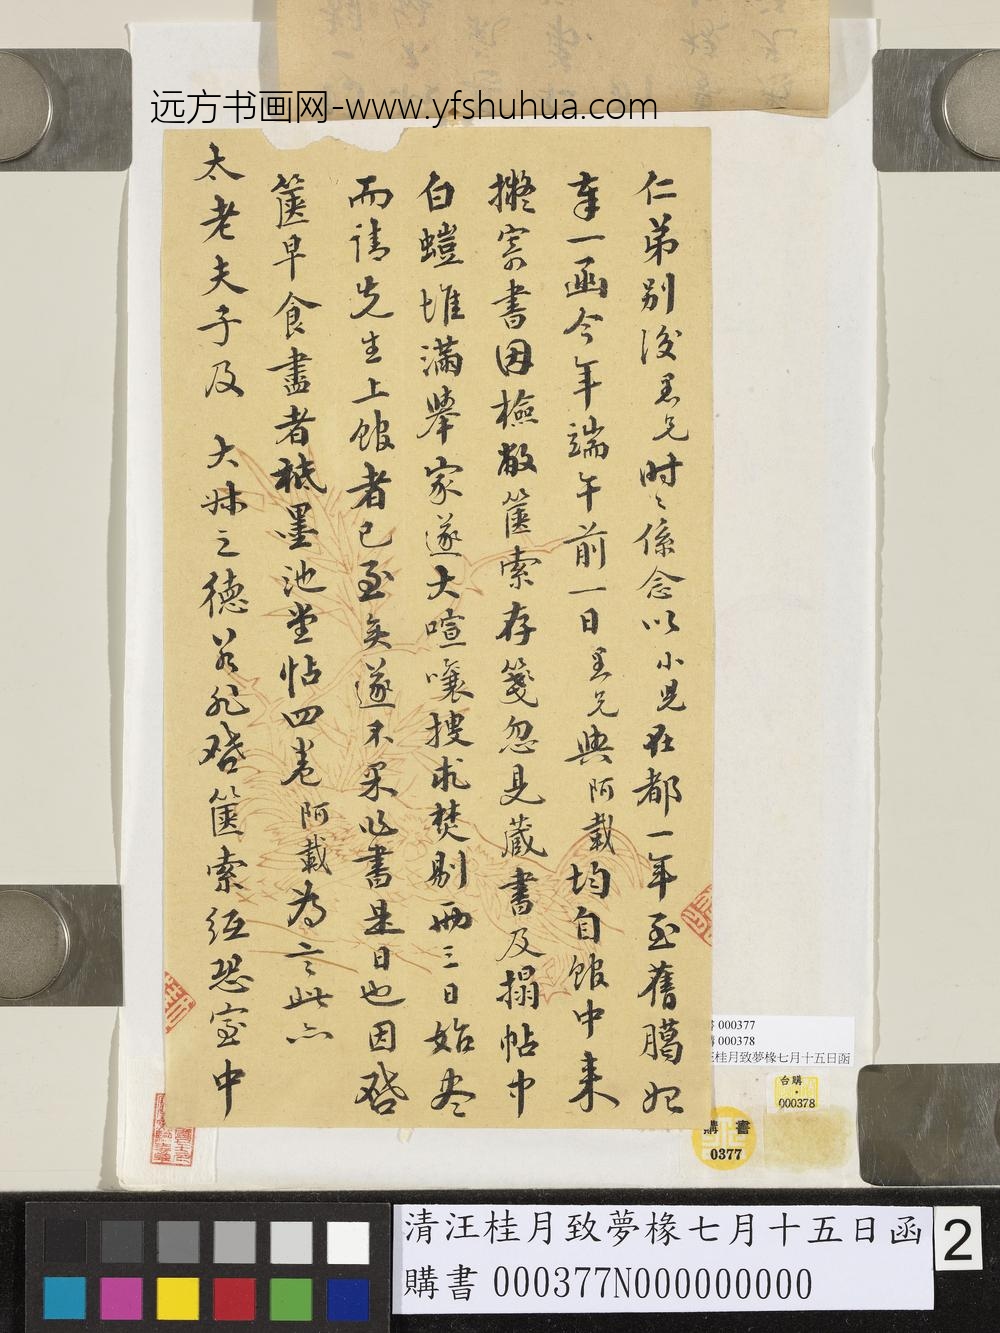 远方书画网-www.yfshuhua.com
仁弟別後愚兄時〻係念以小兒在都一年至舊臘始
奉一函今年端午前一日愚兄與阿載均自館中来
擬寄書因檢敝篋索存箋忽見藏書及搨帖中
白螘堆滿舉家遂大喧嚷搜求焚剔兩三日始尽
而請先生上館者已至矣遂不果作書是日也因啓
篋早食盡者祗墨池堂帖四卷阿載為言此亦
太老夫子及 大妹之德若非啓篋索紙恐室中
書 000377
購 000378
汪桂月致夢椽七月十五日函
台購
000378
購 書
0377
清汪桂月致夢椽七月十五日函
購書 000377N000000000
2